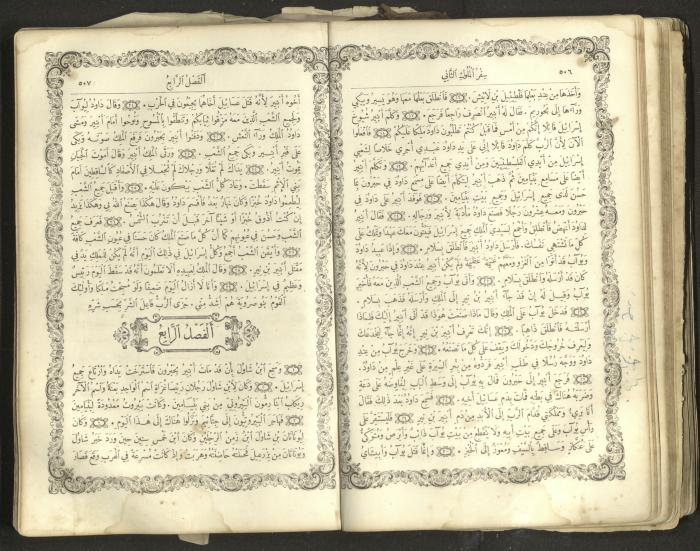 ٥٠٦
سِفْرُ المُلُوكِ الثَّانِي
وَأَخَذَهَا مِنْ عِنْدِ بَعْلِهَا فَلْطِيئِيلَ بْنِ لَائِيشَ. فَانْطَلَقَ بَعْلُهَا مَعَهَا وَهُوَ يَسِيرُ وَيَبْكِي
وَرَاءَهَا إِلَى بَحُورِيمَ. فَقَالَ لَهُ أَبْنِيرُ انْصَرِفْ رَاجِعًا فَرَجَعَ. وَكَلَّمَ أَبْنِيرُ شُيُوخَ
إِسْرَائِيلَ قَائِلًا إِنَّكُمْ مِنْ أَمْسِ فَمَا قَبْلُ كُنْتُمْ تَطْلُبُونَ دَاوُدَ مَلِكًا عَلَيْكُمْ فَافْعَلُوا
الآنَ لِأَنَّ الرَّبَّ كَلَّمَ دَاوُدَ قَائِلًا إِنِّي عَلَى يَدِ دَاوُدَ عَبْدِي أُجْرِي خَلَاصًا لِشَعْبِي
إِسْرَائِيلَ مِنْ أَيْدِي الفَلِسْطِينِيِّينَ وَمِنْ أَيْدِي جَمِيعِ أَعْدَائِهِمْ. وَتَكَلَّمَ أَبْنِيرُ
أَيْضًا عَلَى مَسَامِعِ بَنْيَامِينَ ثُمَّ ذَهَبَ أَبْنِيرُ لِيَتَكَلَّمَ أَيْضًا عَلَى مِسْمَعِ دَاوُدَ فِي حَبْرُونَ بِمَا
حَسُنَ لَدَى جَمِيعِ إِسْرَائِيلَ وَجَمِيعِ بَيْتِ بَنْيَامِينَ. فَوَفَدَ أَبْنِيرُ عَلَى دَاوُدَ فِي
حَبْرُونَ وَمَعَهُ عِشْرُونَ رَجُلًا فَصَنَعَ دَاوُدُ مَأْدُبَةً لِأَبْنِيرَ وَرِجَالِهِ. فَقَالَ أَبْنِيرُ
لِدَاوُدَ أَنْهَضُ فَأَنْطَلِقُ وَأَجْمَعُ لِسَيِّدِي المَلِكِ جَمِيعَ إِسْرَائِيلَ فَيَبُتُّونَ مَعَكَ عَهْدًا وَتَمْلِكُ عَلَى
كُلِّ مَا تَشْتَهِي نَفْسُكَ. فَأَرْسَلَ دَاوُدُ أَبْنِيرَ فَانْطَلَقَ بِسَلَامٍ. وَإِذَا عَبِيدُ دَاوُدَ
وَيُوآبُ قَدْ أَتَوْا مِنَ الغَزْوِ وَمَعَهُمْ غَنِيمَةٌ عَظِيمَةٌ وَلَمْ يَكُنْ أَبْنِيرُ عِنْدَ دَاوُدَ فِي حَبْرُونَ لِأَنَّهُ
كَانَ قَدْ أَرْسَلَهُ فَانْطَلَقَ بِسَلَامٍ. وَأَتَى يُوآبُ وَجَمِيعُ الشَّعْبِ الَّذِينَ مَعَهُ فَأُخْبِرَ
يُوآبُ وَقِيلَ لَهُ إِنْ قَدْ جَاءَ أَبْنِيرُ بْنُ نِيرٍ إِلَى المَلِكِ وَأَرْسَلَهُ فَذَهَبَ بِسَلَامٍ.
فَدَخَلَ يُوآبُ عَلَى المَلِكِ وَقَالَ مَاذَا صَنَعْتَ هُوَذَا قَدْ أَتَى أَبْنِيرُ إِلَيْكَ فَلِمَاذَا
أَرْسَلْتَهُ فَانْطَلَقَ ذَاهِبًا. إِنَّكَ تَعْرِفُ أَبْنِيرَ بْنَ نِيرٍ إِنَّهُ إِنَّمَا جَاءَ لِيَخْدَعَكَ
وَلِيَعْرِفَ خُرُوجَكَ وَدُخُولَكَ وَيَقِفَ عَلَى كُلِّ مَا تَصْنَعُهُ. وَخَرَجَ يُوآبُ مِنْ عِنْدِ
دَاوُدَ وَوَجَّهَ رُسُلًا فِي طَلَبِ أَبْنِيرَ فَرَدُّوهُ مِنْ بِئْرِ السِّيرَةِ عَلَى غَيْرِ عِلْمٍ مِنْ دَاوُدَ
فَرَجَعَ أَبْنِيرُ إِلَى حَبْرُونَ فَمَالَ بِهِ يُوآبُ إِلَى وَسَطِ البَابِ لِيُفَاوِضَهُ عَلَى دَعَةٍ
وَضَرَبَهُ هُنَاكَ فِي بَطْنِهِ فَمَاتَ بِدَمِ عَسَائِيلَ أَخِيهِ. فَسَمِعَ دَاوُدُ بَعْدَ ذٰلِكَ فَقَالَ
أَنَا بَرِيءٌ وَمَمْلَكَتِي قُدَّامَ الرَّبِّ إِلَى الأَبَدِ مِنْ دَمِ أَبْنِيرَ بْنِ نِيرٍ. فَلْيَسْتَقِرَّ عَلَى
رَأْسِ يُوآبَ وَعَلَى جَمِيعِ بَيْتِ أَبِيهِ وَلَا يَنْقَطِعْ مِنْ بَيْتِ يُوآبَ ذَائِبٌ وَأَبْرَصُ وَمُتَوَكِّئٌ
عَلَى عُكَّازٍ وَسَاقِطٌ بِالسَّيْفِ وَمُعْوِزٌ إِلَى الخُبْزِ. وَإِنَّمَا قَتَلَ يُوآبُ وَأَبِيشَايُ
٥٠٧
أَلْفَصْلُ الرَّابِعُ
أَخُوهُ أَبْنِيرَ لِأَنَّهُ قَتَلَ عَسَائِيلَ أَخَاهُمَا بِجِبْعُونَ فِي الحَرْبِ. وَقَالَ دَاوُدُ لِيُوآبَ
وَلِجَمِيعِ الشَّعْبِ الَّذِينَ مَعَهُ مَزِّقُوا ثِيَابَكُمْ وَتَنَطَّقُوا بِالمُسُوحِ وَنُوحُوا أَمَامَ أَبْنِيرَ وَمَشَى
دَاوُدُ المَلِكُ وَرَاءَ النَّعْشِ. وَدَفَنُوا أَبْنِيرَ بِحَبْرُونَ فَرَفَعَ المَلِكُ صَوْتَهُ وَبَكَى
عَلَى قَبْرِ أَبْنِيرَ وَبَكَى جَمِيعُ الشَّعْبِ. وَرَثَى المَلِكُ أَبْنِيرَ وَقَالَ أَمَوْتَ الجَبَانِ
يَمُوتُ أَبْنِيرُ. يَدَاكَ لَمْ تُغَلَّا وَرِجْلَاكَ لَمْ تُجْعَلَا فِي الأَصْفَادِ كَالسَّاقِطِينَ أَمَامَ
بَنِي الإِثْمِ سَقَطْتَ. وَعَادَ كُلُّ الشَّعْبِ يَبْكُونَ عَلَيْهِ. وَأَقْبَلَ جَمِيعُ الشَّعْبِ
لِيُطْعِمُوا دَاوُدَ خُبْزًا وَكَانَ نَهَارٌ بَعْدُ فَأَقْسَمَ دَاوُدُ وَقَالَ هٰكَذَا يَصْنَعُ اللهُ بِي وَهٰكَذَا يَزِيدُ
إِنْ كُنْتُ أَذُوقُ خُبْزًا أَوْ شَيْئًا آخَرَ قَبْلَ أَنْ تَغْرُبَ الشَّمْسُ. فَعَرَفَ جَمِيعُ
الشَّعْبِ وَحَسُنَ فِي عُيُونِهِمْ كَمَا أَنَّ كُلَّ مَا صَنَعَ المَلِكُ كَانَ حَسَنًا فِي عُيُونِ الشَّعْبِ كَافَّةً
وَأَيْقَنَ الشَّعْبُ أَجْمَعُ وَكُلُّ إِسْرَائِيلَ فِي ذٰلِكَ اليَوْمِ أَنَّهُ لَمْ يَكُنْ لِلْمَلِكِ يَدٌ فِي
مَقْتَلِ أَبْنِيرَ بْنِ نِيرٍ. وَقَالَ المَلِكُ لِعَبِيدِهِ أَلَا تَعْلَمُونَ أَنَّهُ قَدْ سَقَطَ اليَوْمَ رَئِيسٌ
وَعَظِيمٌ فِي إِسْرَائِيلَ. وَأَنَا لَا أَزَالُ اليَوْمَ ضَعِيفًا وَلَوْ مُسِحْتُ مَلِكًا وَأُولٰئِكَ
القَوْمُ بَنُو صَرُويَةَ هُمْ أَشَدُّ مِنِّي. جَزَى الرَّبُّ فَاعِلَ الشَّرِّ بِحَسَبِ شَرِّهِ
أَلْفَصْلُ الرَّابِعُ
وَسَمِعَ ابْنُ شَاوُلَ بِأَنْ قَدْ مَاتَ أَبْنِيرُ بِحَبْرُونَ فَاسْتَرْخَتْ يَدَاهُ وَارْتَاعَ جَمِيعُ
إِسْرَائِيلَ. وَكَانَ لِابْنِ شَاوُلَ رَجُلَانِ رَئِيسَا غُزَاةٍ اسْمُ الوَاحِدِ بَعْنَا وَاسْمُ الآخَرِ
رِيكَابُ ابْنَا رِمُّونَ البَئِيرُوتِيِّ مِنْ بَنِي بَنْيَامِينَ. وَكَانَتْ بَئِيرُوتُ مَعْدُودَةً لِبَنْيَامِينَ
فَهَاجَرَ البَئِيرُوتِيُّونَ إِلَى جِتَّائِمَ وَنَزَلُوا هُنَاكَ إِلَى هٰذَا اليَوْمِ. وَكَانَ
لِيُونَاتَانَ بْنِ شَاوُلَ ابْنٌ زَمِنُ الرِّجْلَيْنِ وَكَانَ ابْنَ خَمْسِ سِنِينَ حِينَ وَرَدَ خَبَرُ شَاوُلَ
وَيُونَاتَانَ مِنْ يِزْرَعِيلَ فَحَمَلَتْهُ حَاضِنَتُهُ وَهَرَبَتْ وَإِذْ كَانَتْ مُسْرِعَةً فِي الهَرَبِ وَقَعَ فَصَارَ